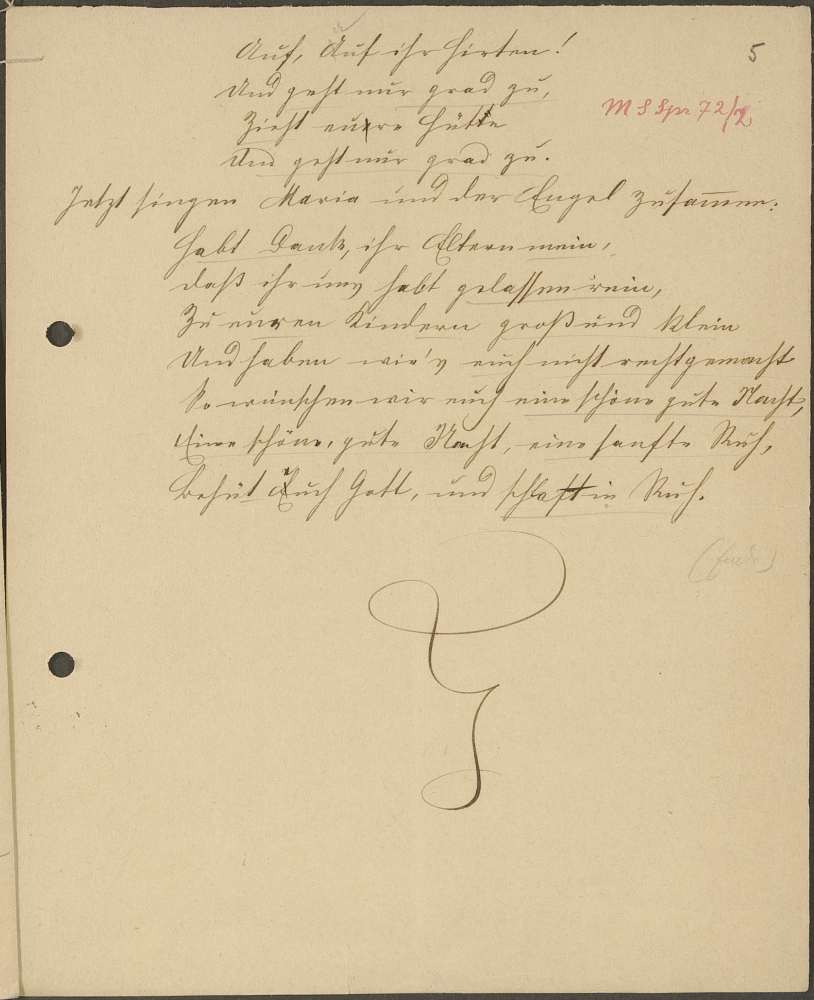 Auf, Auf ihr Hirten!
5
Und geht nur grad zu,
M S Spr 72/2
Zieht eure Hüte
Und geht nur grad zu.
Jetzt singen Maria und der Engel zusammen:
Habt Dank, ihr Eltern mein,
daß ihr uns habt gelassen rein,
Zu euren Kindern groß und klein
Und haben wir's euch nicht rechtgemacht
So wünschen wir euch eine schöne gute Nacht,
Eine schöne, gute Nacht, eine sanfte Ruh,
Behüt Euch Gott, und schlaft in Ruh.
(Ende)